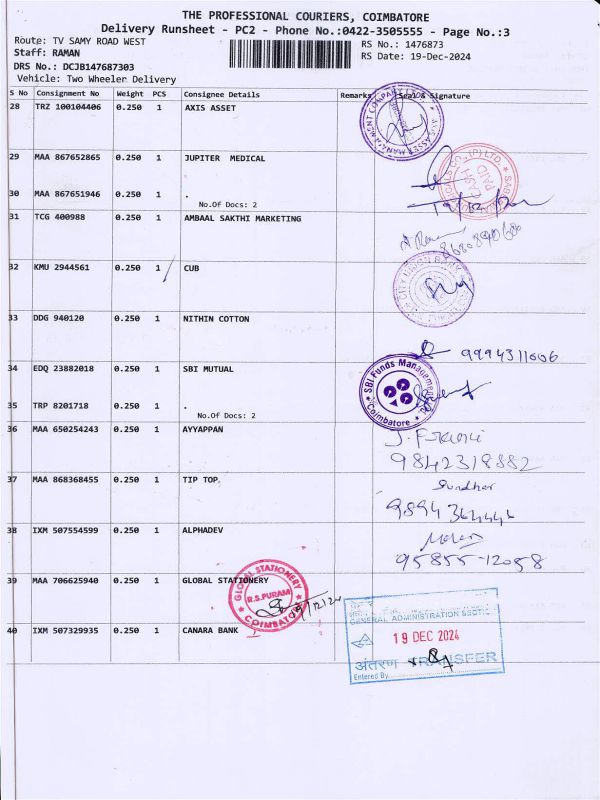 THE PROFESSIONAL COURIERS, COIMBATORE
Delivery Runsheet - PC2 - Phone No.:0422-3505555 - Page No.:3
Route: TV SAMY ROAD WEST
RS No.: 1476873
Staff: RAMAN
RS Date: 19-Dec-2024
DRS No.: DCJB147687303
Vehicle: Two Wheeler Delivery
S No Consignment No Weight PCS Consignee Details Remarks Seal & Signature
28 TRZ 100104406 0.250 1 AXIS ASSET
29 MAA 867652865 0.250 1 JUPITER MEDICAL
CASH PAID
30 MAA 867651946 0.250 1 .
No.Of Docs: 2
31 TCG 400988 0.250 1 AMBAAL SAKTHI MARKETING
32 KMU 2944561 0.250 1 CUB
CITY UNION BANK
33 DDG 940120 0.250 1 NITHIN COTTON
9994311006
34 EDQ 23882018 0.250 1 SBI MUTUAL
SBI Funds Management
Coimbatore
35 TRP 8201718 0.250 1 .
No.Of Docs: 2
36 MAA 650254243 0.250 1 AYYAPPAN
9842318882
37 MAA 868368455 0.250 1 TIP TOP
Sundhar
38 IXM 507554599 0.250 1 ALPHADEV
95855-12058
39 MAA 706625940 0.250 1 GLOBAL STATIONERY
GLOBAL STATIONERY
R.S.PURAM
COIMBATORE
40 IXM 507329935 0.250 1 CANARA BANK
GENERAL ADMINISTRATION SECTION
19 DEC 2024
अंतरण TRANSFER
Entered By